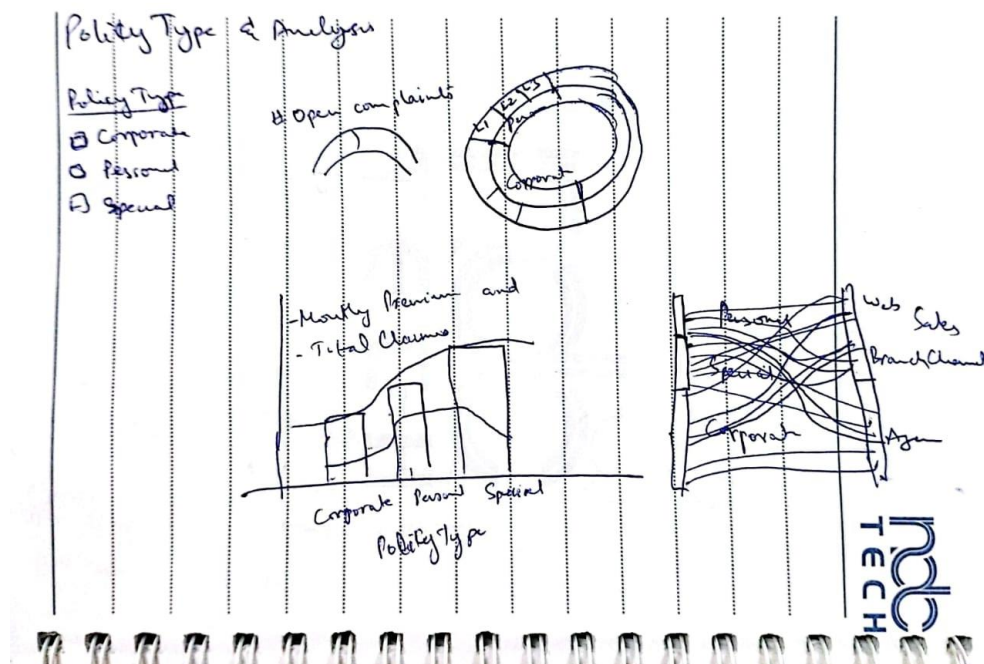 Polity Type & Analysis
Policy Type
Corporate
Personal
Special
# Open complaints
L1 L2 L3
Person
Corporat
- Montly Premium and
- Total Claims
Corporate Personal Special
Polity Type
Personal
Special
Corporate
Web
Sales
Branch Channel
Agen
ndc
TECH